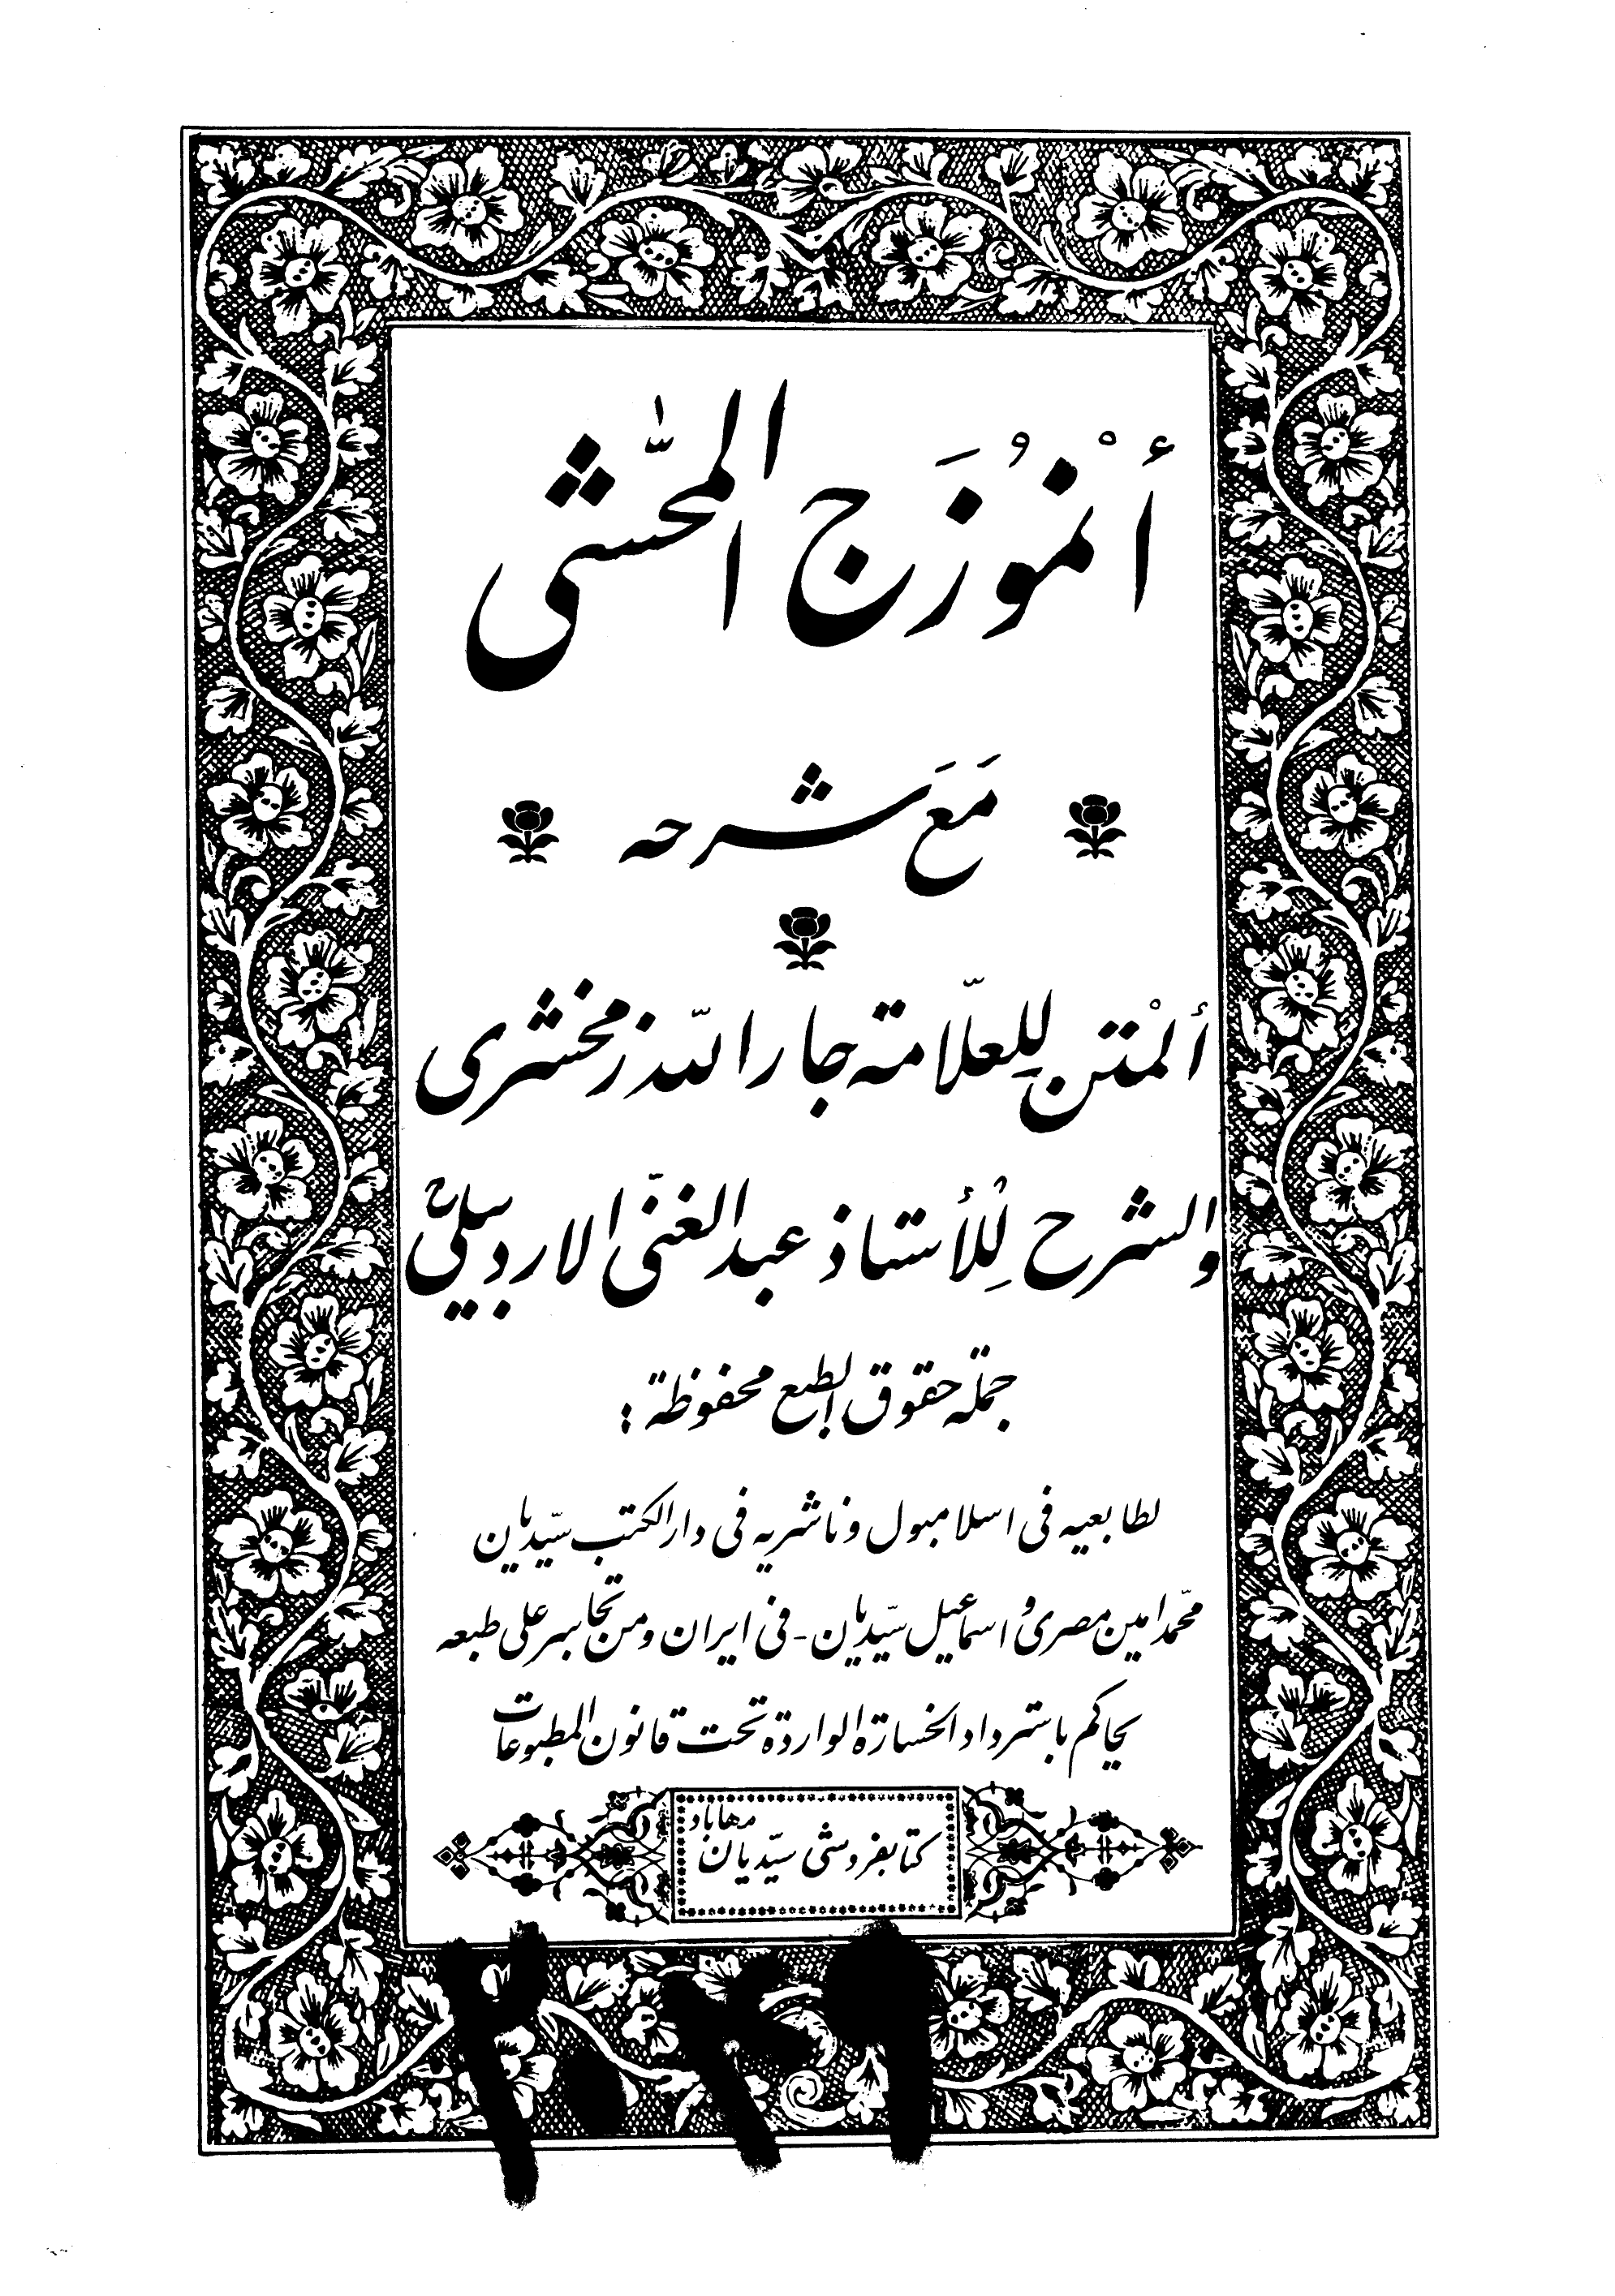 أنْمُوزَج المحّشی
مَعَ شرحه
ألمْتن لِلِعلّامة جار اللّه زمخشری
والشرح لِلْأستاذ عبد الغنّی الاردبیلیّ
جملة حقوق الطبع محفوظة :
لطابعیه فی اسلامبول وناشریه فی دار الکتب سیّدیان
محمّد امین مصری و اسماعیل سیّدیان - فی ایران ومن تجاسر علی طبعه
یحاکم باسترداد الخسارة الواردة تحت قانون المطبوعات
مهاباد
کتابفروشی سیّدیان
۲۰۴۹